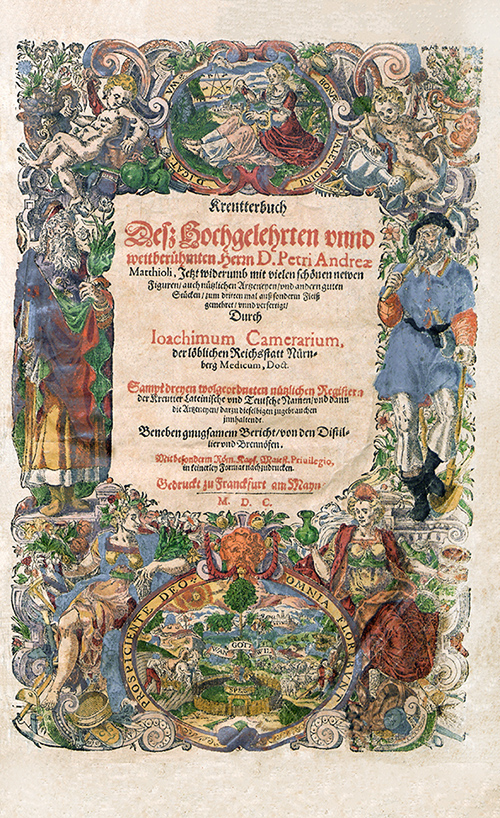 Kreutterbuch
Deß Hochgelehrten vnnd
weitberühmten Herrn D. Petri Andreæ
Matthioli, Jetzt widerumb mit vielen schönen newen
Figuren/ auch nützlichen Artzeneyen/ vnd andern guten
Stücken/ zum dritten mal auß sonderm Fleiß
gemehret/ vnnd verfertigt/
Durch
Ioachimum Camerarium,
der löblichen Reichsstatt Nürn-
berg Medicum, Doct.
Sampt dreyen wolgeordneten nützlichen Registern
der Kreutter Lateinische vnd Teutsche Namen/ vnd dann
die Artzeneyen/ darzu dieselbigen zugebrauchen
innhaltendt.
Beneben gnugsamem Bericht/ von den Distil-
lier vnd Brennöfen.
Mit besonderm Röm. Kays. Maiest. Priuilegio,
in keinerley Format nachzudrucken.
Gedruckt zu Franckfurt am Mayn,
M. D. C.
PROSPICIENTE DEO OMNIA FLORENT
GOTT